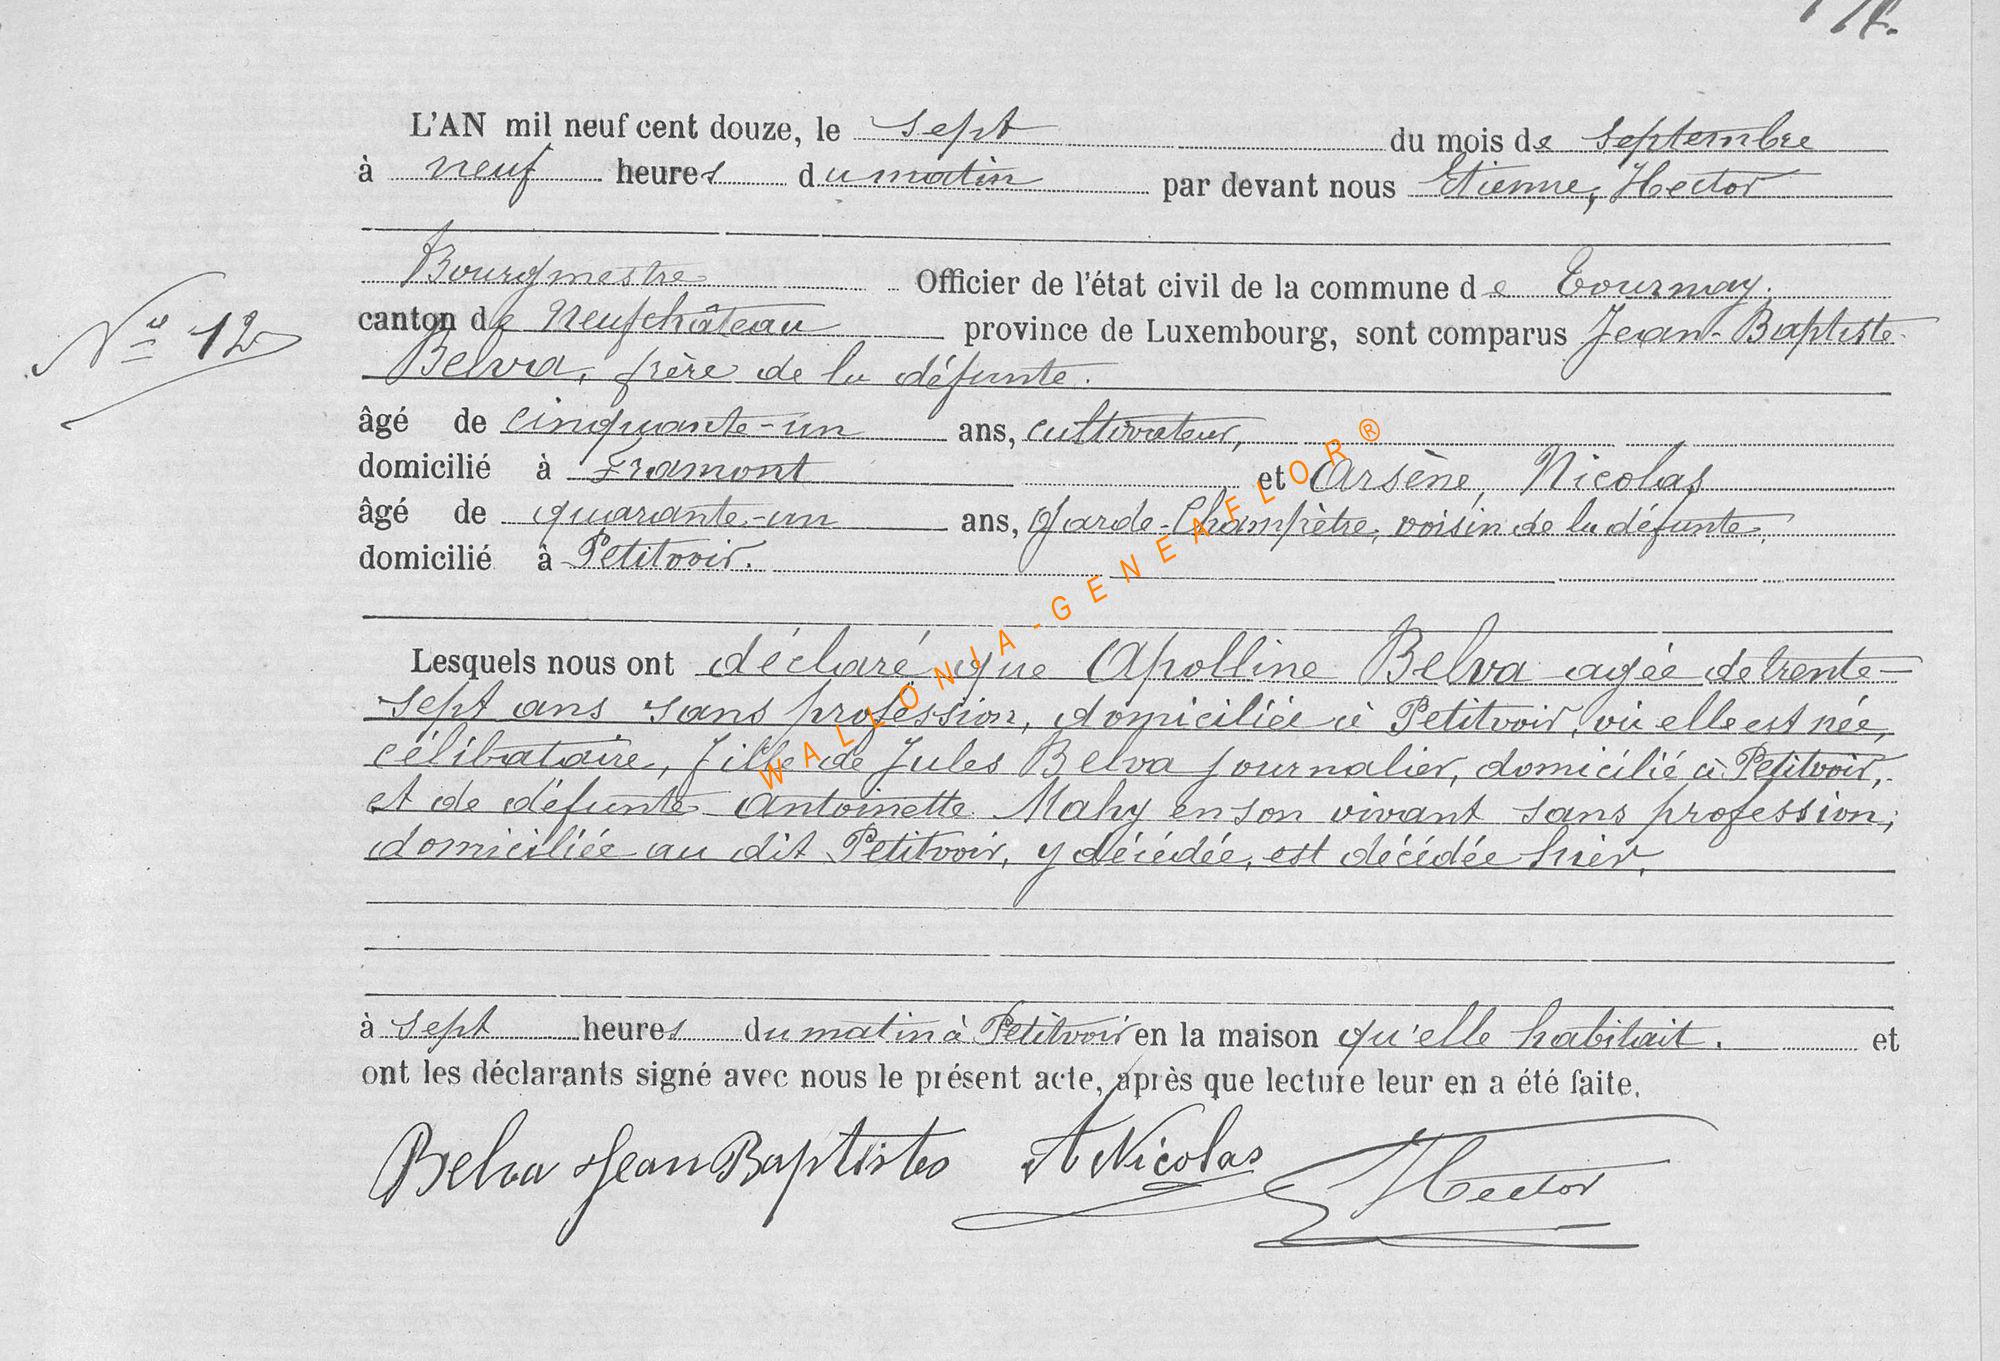 L'AN mil neuf cent douze, le sept du mois de septembre
à neuf heures du matin par devant nous Etienne, Hector
Bourgmestre Officier de l'état civil de la commune de Tournay.
N° 12
canton de Neufchâteau province de Luxembourg, sont comparus Jean-Baptiste
Belva, frère de la défunte.
âgé de cinquante-un ans, cultivateur,
domicilié à Framont et Arsène, Nicolas
âgé de quarante-un ans, Garde-Champêtre, voisin de la défunte,
domicilié à Petitvoir.
WALLONIA-GENEAFLOR®
Lesquels nous ont déclaré que Apolline Belva agée de trente-
sept ans sans profession, domiciliée à Petitvoir, où elle est née,
célibataire, fille de Jules Belva journalier, domicilié à Petitvoir,
et de défunte Antoinette Mahy en son vivant sans profession,
domiciliée au dit Petitvoir, y décédée, est décédée hier,
à sept heures du matin à Petitvoir en la maison qu'elle habitait. et
ont les déclarants signé avec nous le présent acte, après que lecture leur en a été faite.
Belva Jean Baptiste A Nicolas Hector